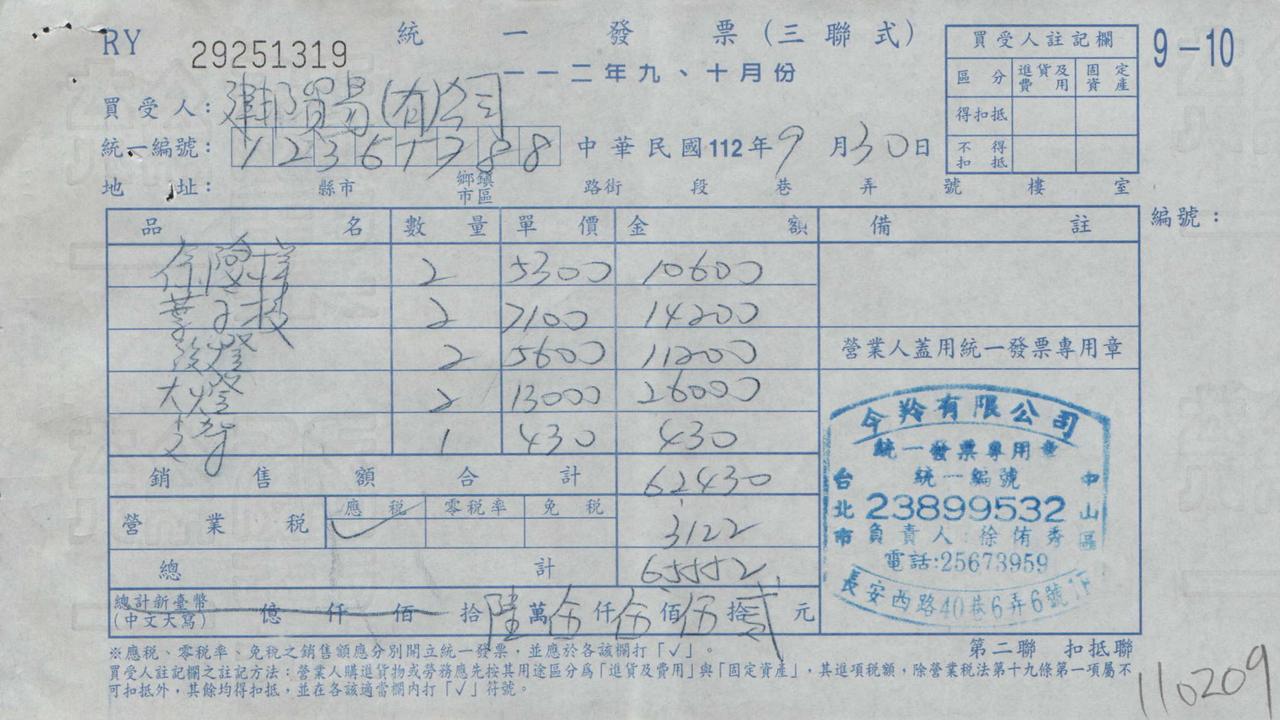 RY 29251319
統一發票(三聯式)
一一二年九、十月份
9-10
買受人註記欄
區分 進貨及費用 固定資產
得扣抵
不得扣抵
買受人: 建邦貿易(有)公司
統一編號: 12361788
中華民國112年9月30日
地址: 縣市 鄉鎮市區 路街 段 巷 弄 號 樓 室
品名 數量 單價 金額 備註
編號:
2 5300 10600
葉子板 2 7100 14200
後燈 2 5600 11200
大燈 2 13000 26000
1 430 430
銷售額合計 62430
營業稅 應稅 ✓ 零稅率 免稅 3122
總計 65552
總計新臺幣(中文大寫) 億 仟 佰 拾 陸萬伍仟伍佰伍拾貳元
營業人蓋用統一發票專用章
今羚有限公司
統一發票專用章
統一編號
23899532
台北市 中山區
負責人:徐侑秀
電話:25673959
長安西路40巷6弄6號1F
※應稅、零稅率、免稅之銷售額應分別開立統一發票,並應於各該欄打「✓」。
第二聯 扣抵聯
買受人註記欄之註記方法:營業人購進貨物或勞務應先按其用途區分為「進貨及費用」與「固定資產」,其進項稅額,除營業稅法第十九條第一項屬不
可扣抵外,其餘均得扣抵,並在各該適當欄內打「✓」符號。
110209